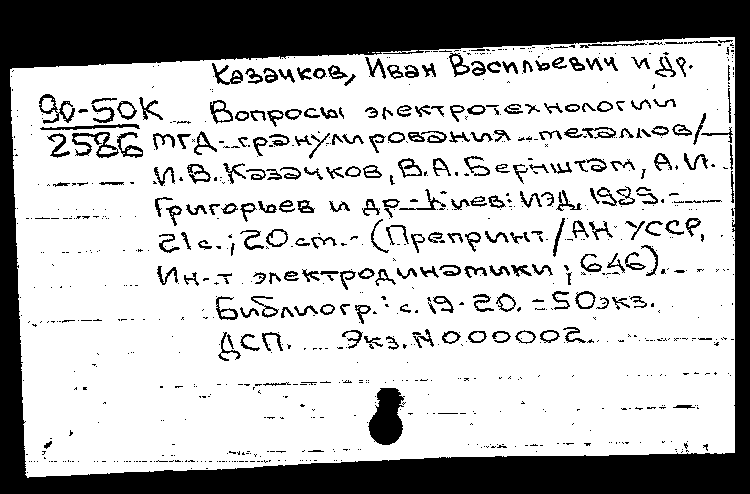 Казачков, Иван Васильевич и др.
90-50К Вопросы электротехнологии
2586 МГД-гранулирования металлов/
И.В. Казачков, В.А. Бернштам, А.И.
Григорьев и др.- Киев: ИЭД, 1989.-
21с.; 20 cm.- (Препринт/АН УССР,
Ин-т электродинамики; 646).
Библиогр.: с. 19-20. - 50 экз.
ДСП. Экз. N 000002.